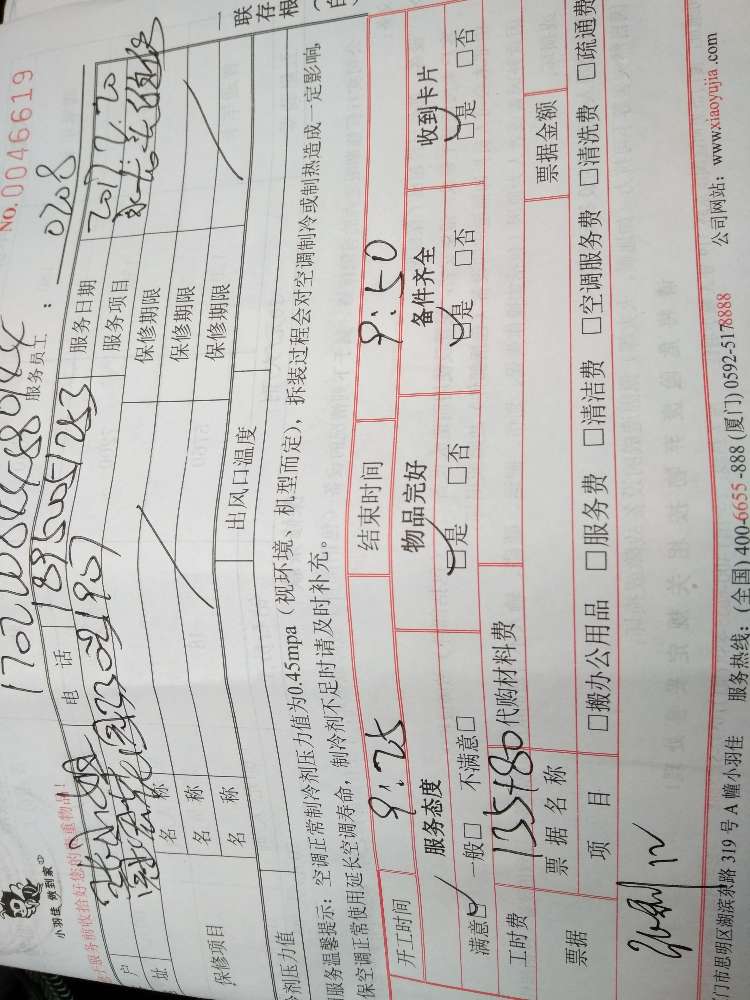 小羽佳 做到家
No.0046619
一联存根
服务员工：0208
电话 18950051253
服务日期 2017.2.20
服务项目
名称 保修期限
名称 保修期限
名称 保修期限
保修项目
出风口温度
服务温馨提示：空调正常制冷剂压力值为0.45mpa（视环境、机型而定），拆装过程会对空调制冷或制热造成一定影响，
保空调正常使用延长空调寿命，制冷剂不足时请及时补充。
开工时间 9:25 结束时间 9:50
服务态度 物品完好 备件齐全 收到卡片
满意☑ 一般□ 不满意□ ☑是 □否 ☑是 □否 ☑是 □否
工时费 135+80 代购材料费
票据 票据名称 票据金额
项目 □搬办公用品 □服务费 □清洁费 □空调服务费 □清洗费 □疏通费
门市思明区湖滨东路 319 号 A 幢小羽佳 服务热线：(全国) 400-6655-888 (厦门) 0592-5178888 公司网站：www.xiaoyujia.com